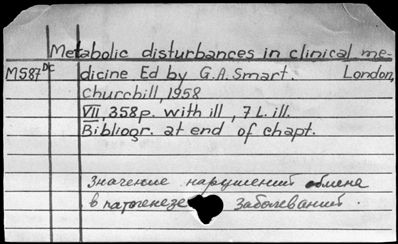 Metabolic disturbances in clinical me-
M587 DC dicine Ed by G.A.Smart. London,
Churchill, 1958
VII, 358p. with ill., 7 L. ill.
Bibliogr. at end of chapt.
Значение нарушений обмена
в патогенезе заболеваний.